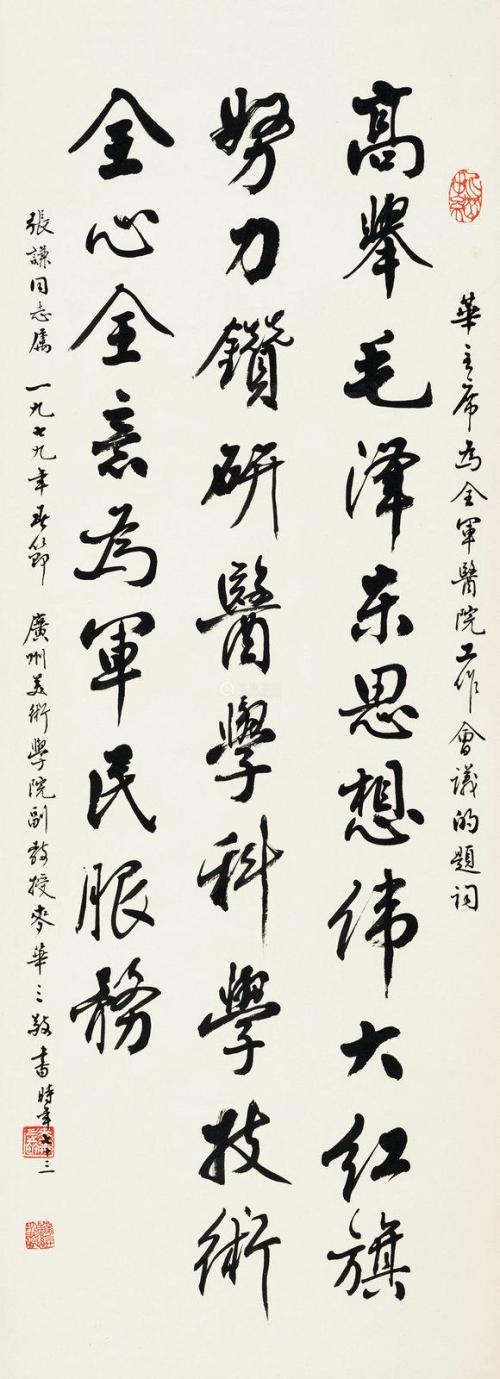 華主席為全軍醫院工作會議的題詞
高舉毛泽东思想伟大红旗
努力鑽研醫學科學技術
全心全意為軍民服務
張謙同志属 一九七九年春節 廣州美術學院副教授麥華三敬書時年七十三